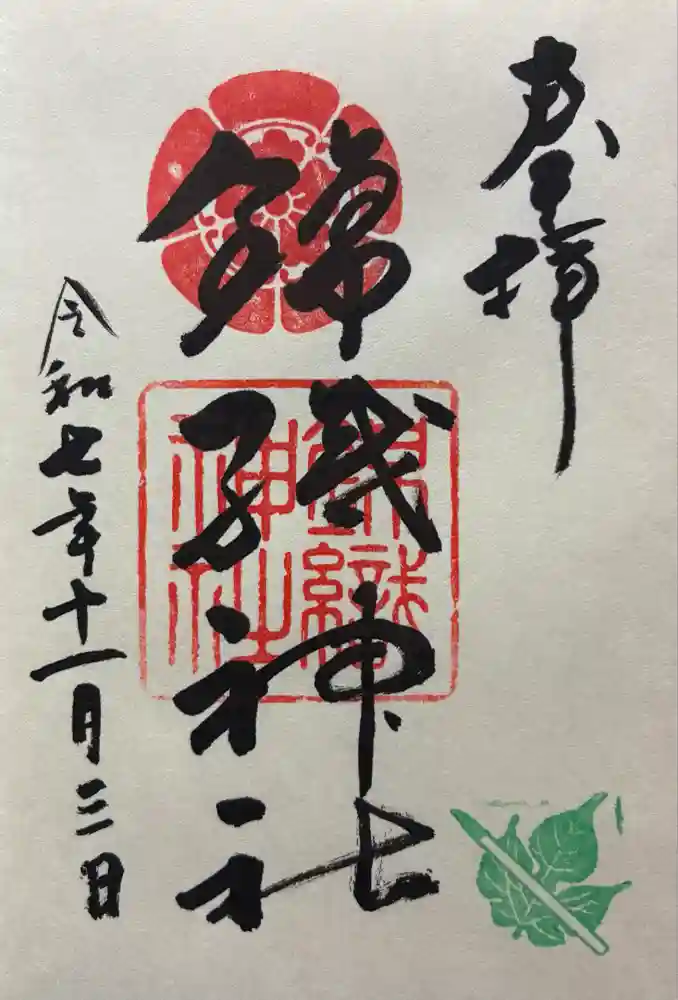 奉拝
錦織神社
錦織神社
令和七年十一月三日